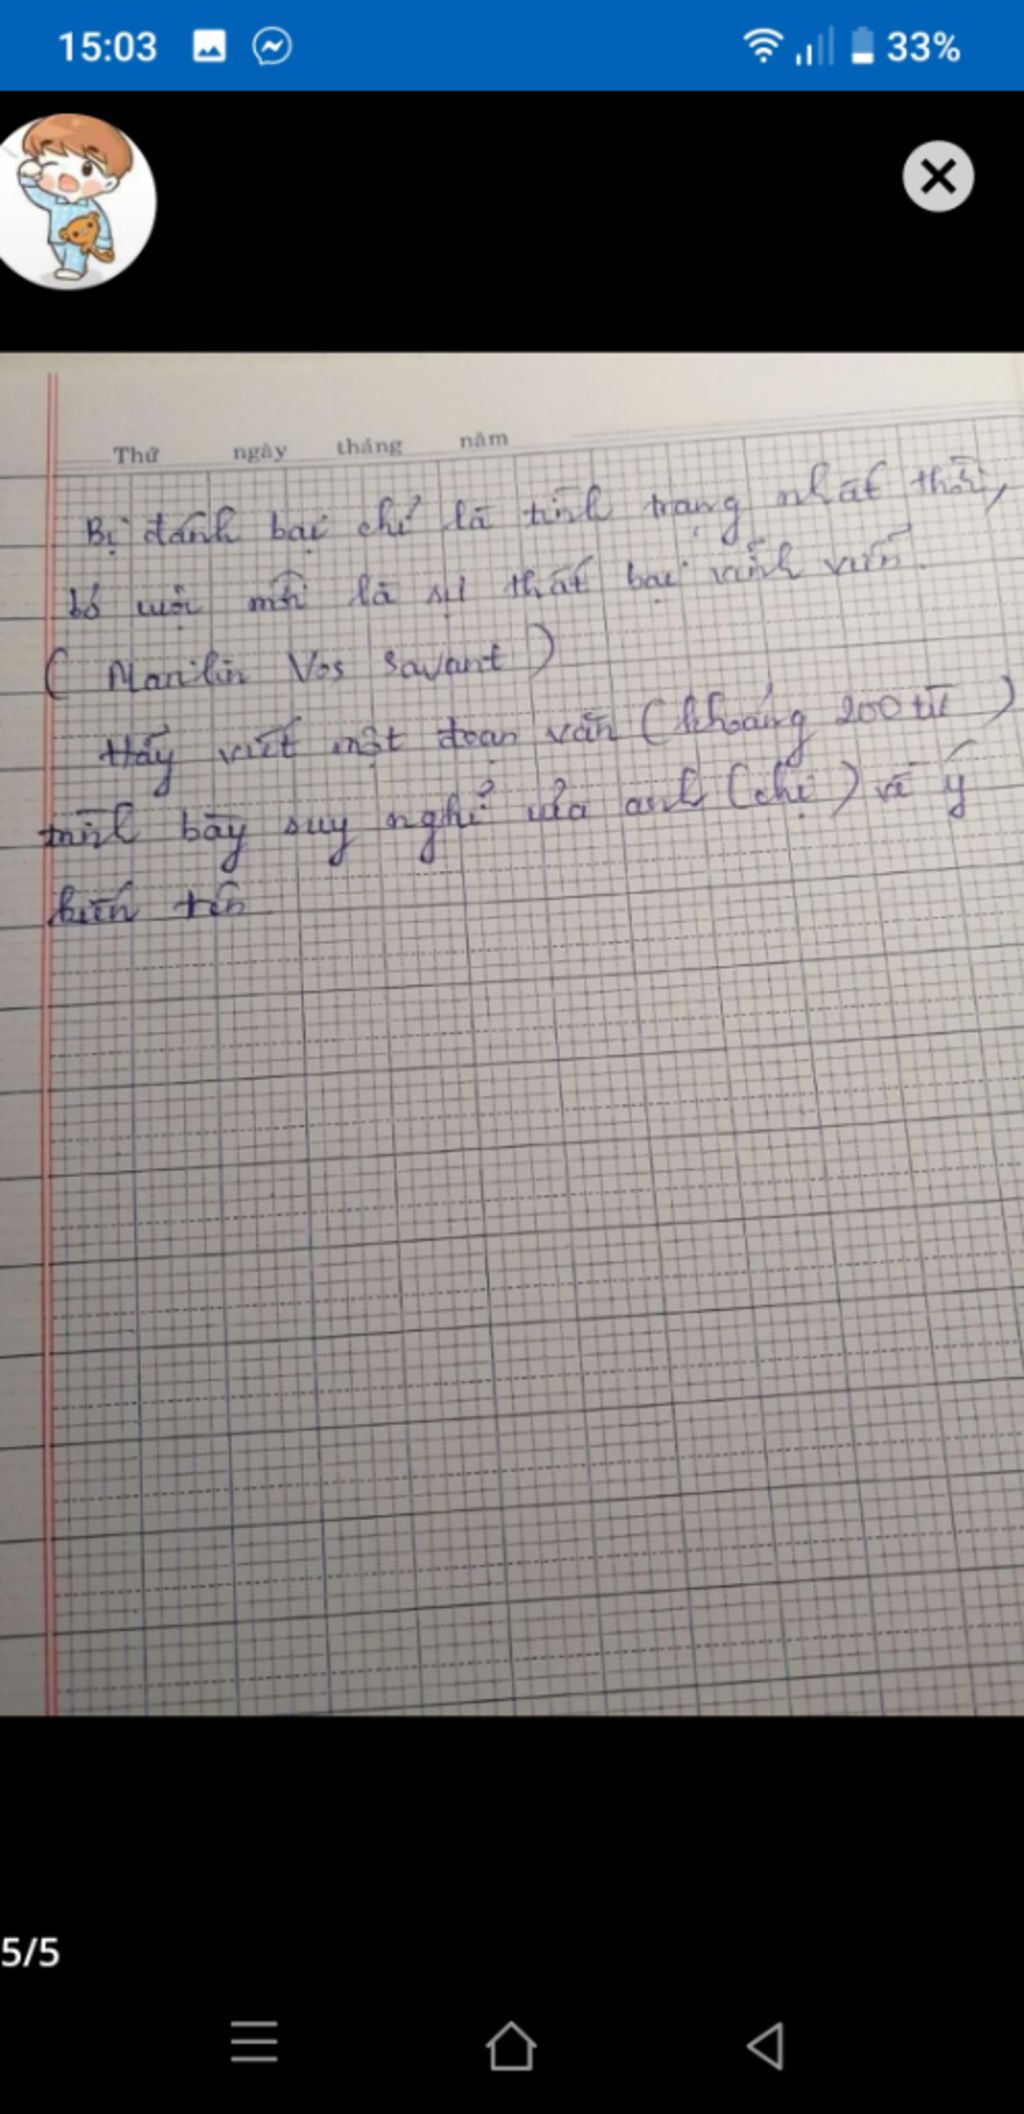 15:03
33%
Thứ ngày tháng năm
Bị đánh bại chỉ là tình trạng nhất thời,
bỏ cuộc mới là sự thất bại vĩnh viễn.
( Marilin Vos Savant )
Hãy viết một đoạn văn ( khoảng 200 từ )
trình bày suy nghĩ của anh (chị ) về ý
kiến trên
5/5